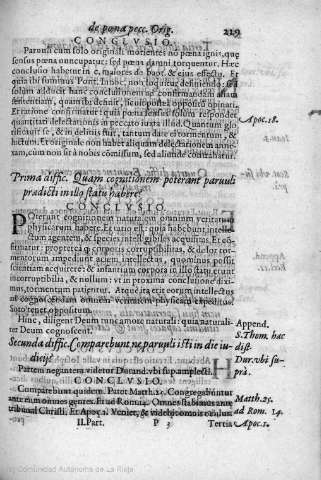 de pœna pecc. Orig. 219
CONCLVSIO.
Paruuli cum solo originali morientes no pœna ignis, quæ
sensus pœna nuncupatur: sed pœna damni torquentur. Hæc
conclusio habetur in c. maiores de bapt. & eius effectu. Et
quia ibi summus Pont. Inno. non loquitur definiendo: sed
solum adducit hanc conclusionem ad confirmandam aliam
sententiam, quam ibi definit, licet potest oppositū opinari.
Et ratione confirmatur: quia pœna sensus solum respondet
quantitati delectationis in peccato iuxta illud. Quantum glo
rificauit se, & in delitiis fuit, tantum date ei tormentum, &
luctum. Et originale non habet aliquam delectationem annexam,
cum non sit à nobis commissum, sed aliunde contrahatur.
Apoc. 18.
Prima diffic. Quam cognitionem poterant paruuli
prædicti in illo statu habere?
CONCLVSIO.
POterunt cognitionem naturalem omnium veritatum
physicarum habere. Et ratio est: quia habebunt intelle-
ctum agentem, & species intelligibiles acquisitas. Et cō-
firmatur: propterea
mentorum, impedunt aciem intellectus, quominus possit
scientiam acquirere: & infantium corpora in illo statu erunt
incorruptibilia, & nollum: vt in proxima conclusione dixi-
mus, tormentum patientur.
ad cognoscendum omnem veritatem physicam expeditus
Soto tenet oppositum.
Hinc, diligent Deum tunc amore naturali: quia naturali-
ter Deum cognoscent.
Append.
S. Thom. hac
dist.
Secunda diffic. Comparebunt ne paruuli isti in die iu-
dicij?
Dur. vbi su-
prà.
Partem negantem videtur Durand. vbi sup. amplecti.
CONCLVSIO.
Comparebunt quidem. Patet Matth. 25. Congregabuntur
ante eum omnes gentes. Et ad Rom. 14. Omnes stabimus ante
tribunal Christi. Et Apoc. 1. Veniet, & videbit eum omnis oculus.
Matth. 25.
ad Rom. 14.
II. Part. P 3 Tertia Apoc. 1.
Comunidad Autónoma de La Rioja